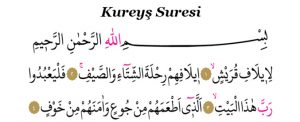 Kureyş Suresi
بِسْمِ اللّٰهِ الرَّحْمٰنِ الرَّحٖيمِ
لِاٖيلَافِ قُرَيْشٍۙ ﴿١﴾ اٖيلَافِهِمْ رِحْلَةَ الشِّتَٓاءِ وَالصَّيْفِۚ ﴿٢﴾ فَلْيَعْبُدُوا
رَبَّ هٰذَا الْبَيْتِۙ ﴿٣﴾ اَلَّذٖٓي اَطْعَمَهُمْ مِنْ جُوعٍ وَاٰمَنَهُمْ مِنْ خَوْفٍ ﴿٤﴾